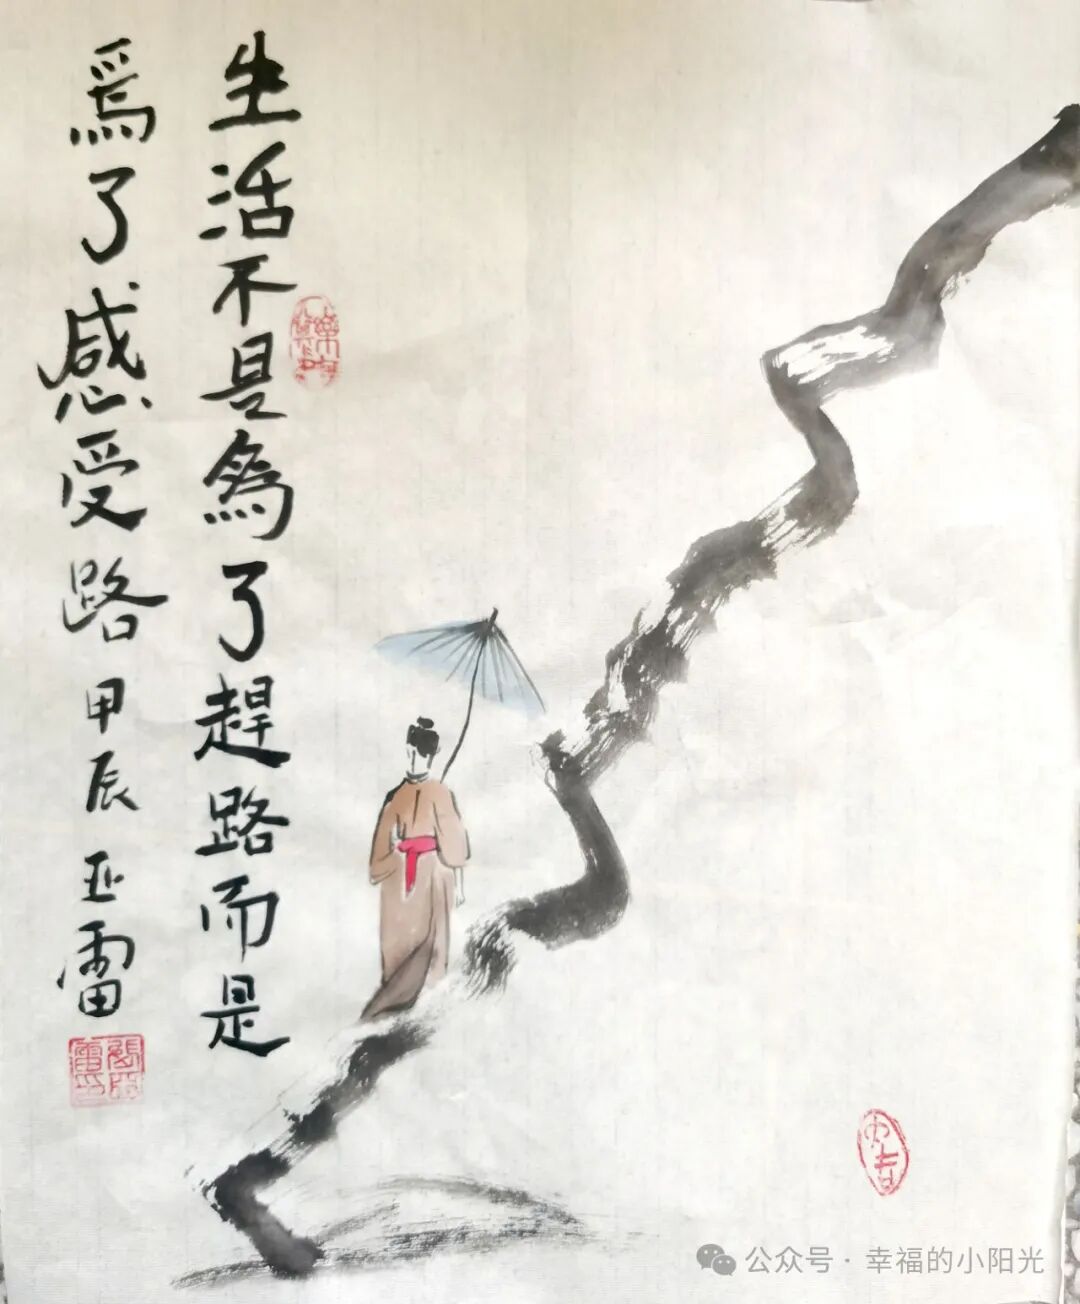 生活不是為了趕路而是
為了感受路甲辰亚雷
公众号·幸福的小阳光